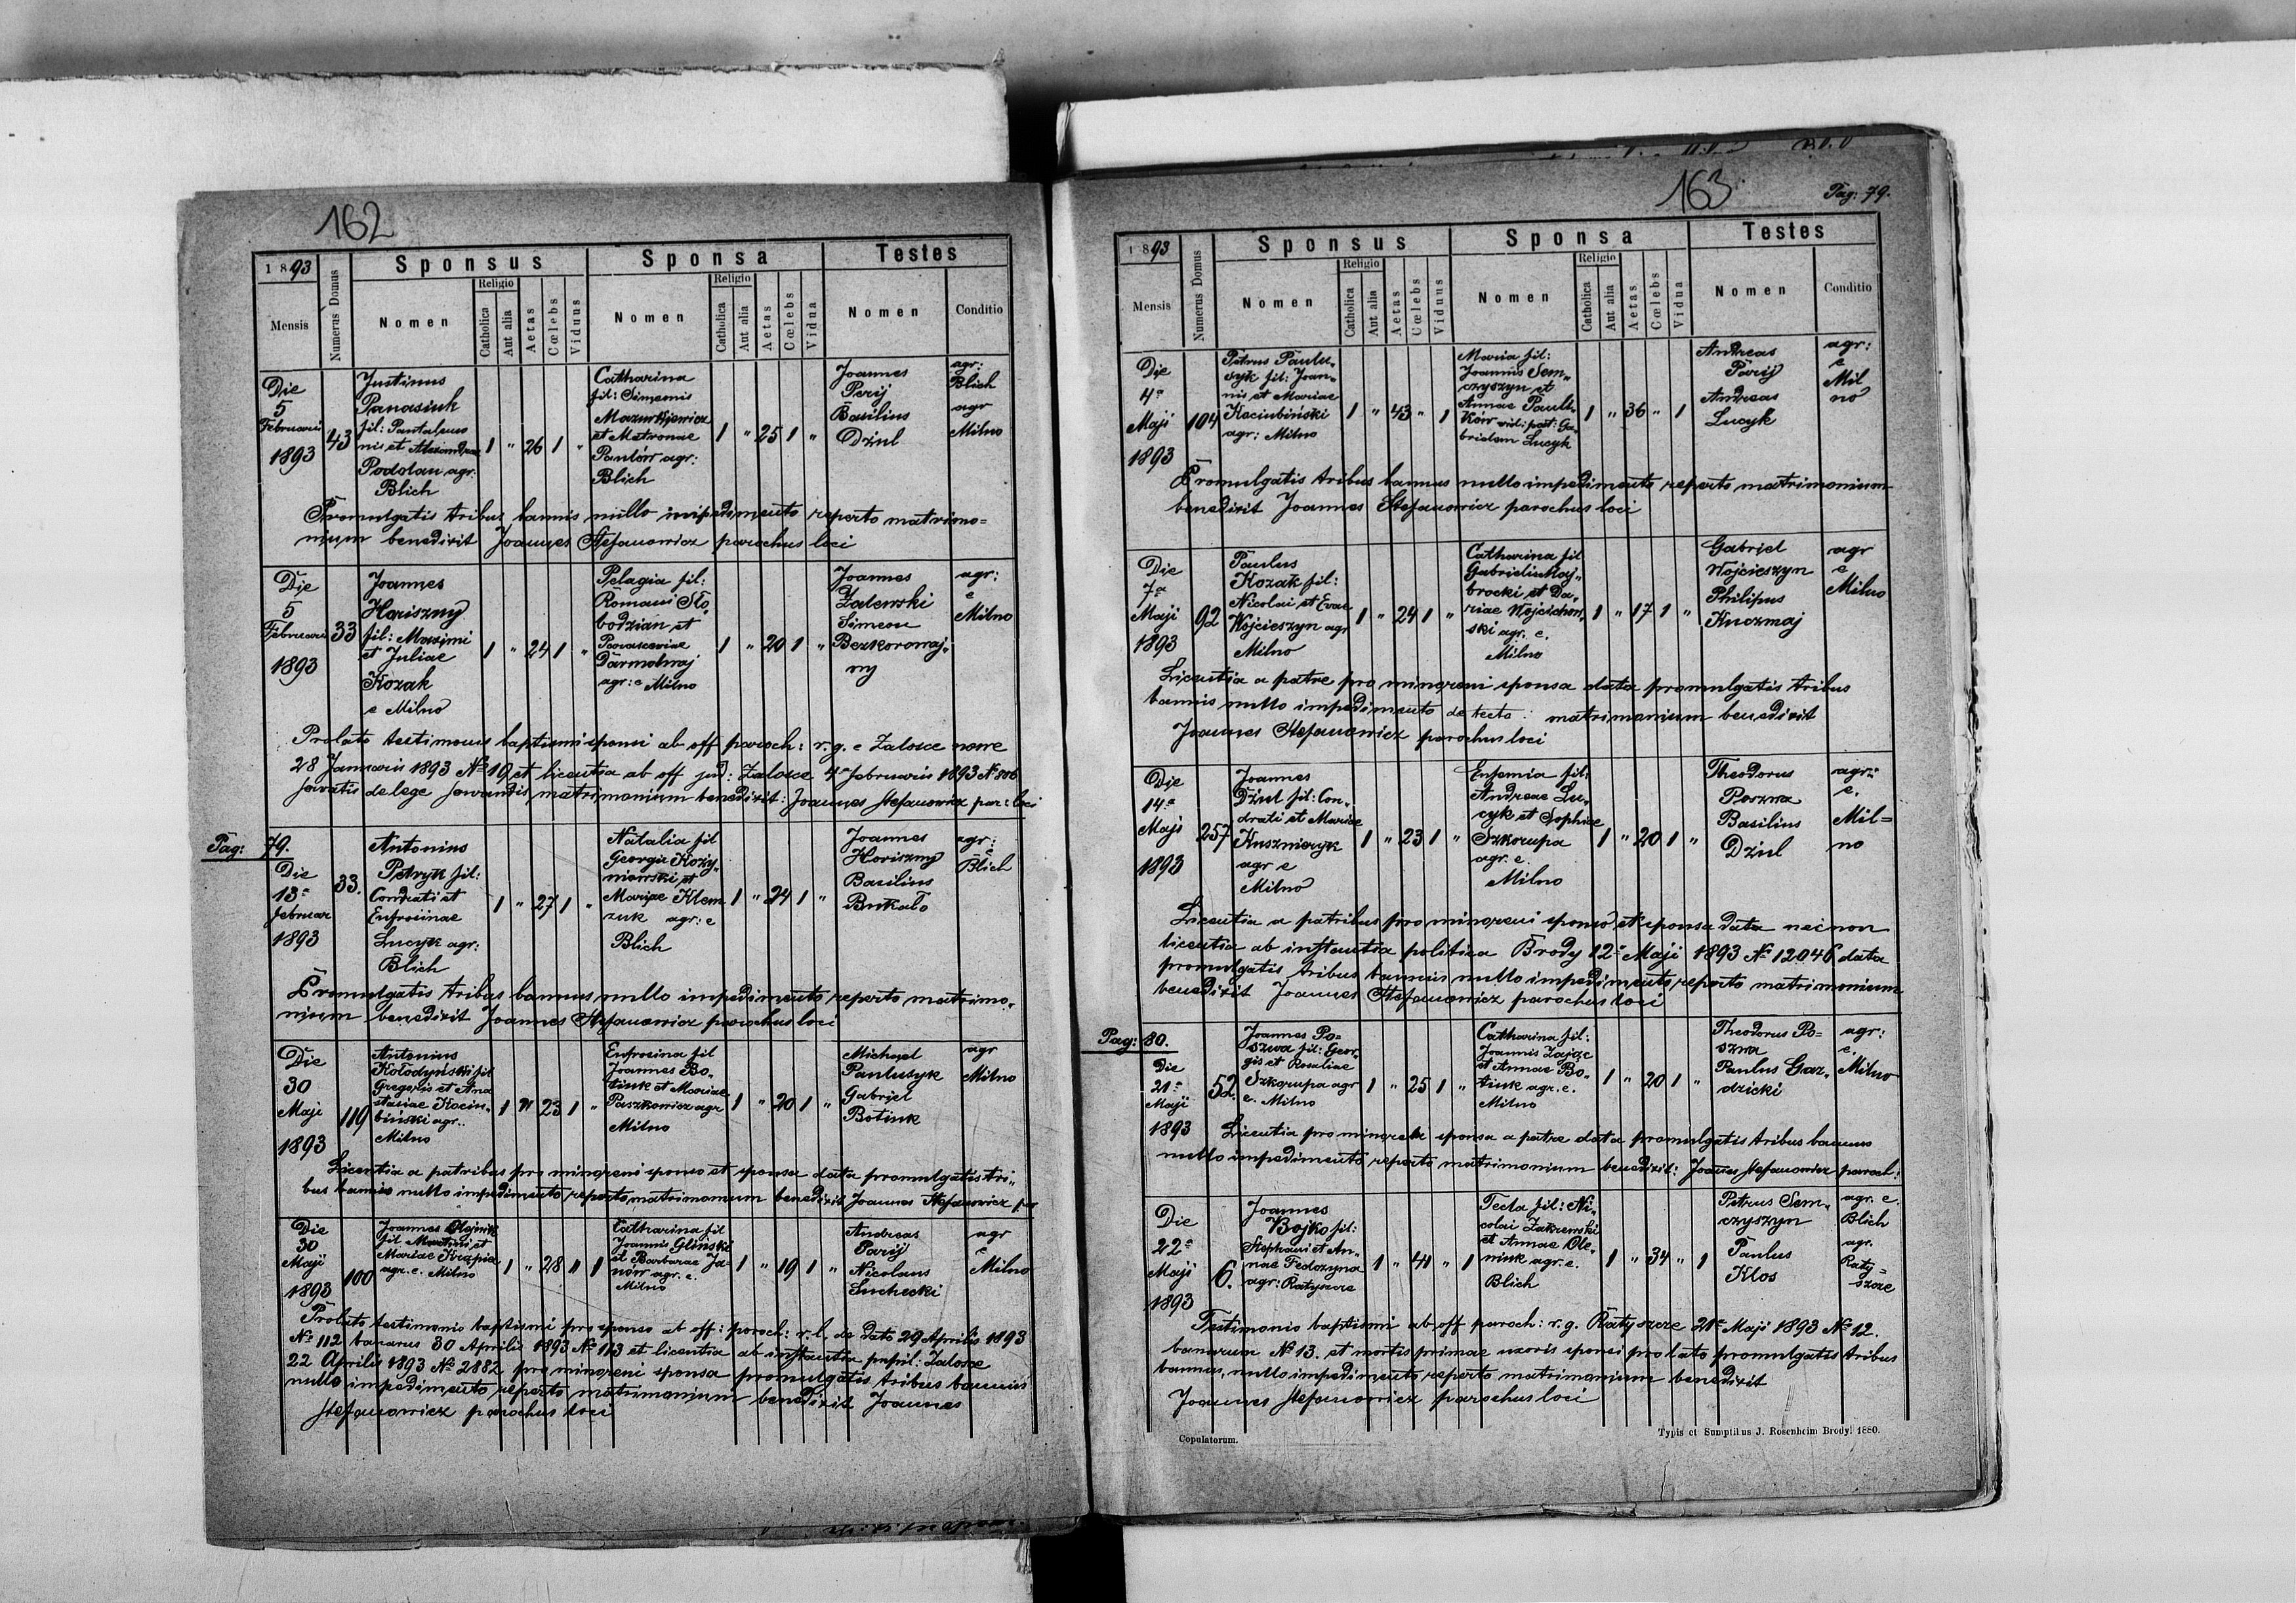 162
1893
Sponsus
Sponsa
Testes
Mensis
Numerus Domus
Nomen
Religio
Catholica
Aut alia
Aetas
Cœlebs
Viduus
Nomen
Religio
Catholica
Aut alia
Aetas
Cœlebs
Vidua
Nomen
Conditio
Die
5
Februarii
1893
43
Justinus
Panasiuk
fil: Pantalemo
nis et Alexandrae
Podolan agr:
Blich
1 " 26 1 "
Catharina
fil: Simeonis
Mazurkiewicz
et Matronae
Pantów agr:
Blich
1 " 25 1 "
Joannes
Perij
Basilius
Dziul
agr:
Blich
agr
Milno
Promulgatis tribus bannis nullo impedimento reperto matrimo=
nium benedixit Joannes Stefanowicz parochus loci
Die
5
Februarii
1893
33
Joannes
Horiszny
fil: Maximi
et Juliae
Kozak
e Milno
1 " 24 1 "
Pelagia fil:
Romani Sło-
bodzian et
Parasceviae
Darmohraj
agr: e Milno
1 " 20 1 "
Joannes
Zalewski
Simeon
Bezkorowaj-
ny
agr:
e
Milno
Prolato testimonio baptismi sponsi ab off paroch: r. g. e Zalosce nowe
28 Januarii 1893 No 10 et licentia ab off jud: Zalosce 4a Februarii 1893 No 806
servatis de lege servandis matrimonium benedixit: Joannes Stefanowicz par: loci
Pag: 79.
Die
13a
februar
1893
33.
Antonius
Petryk fil:
Condrati et
Eufrosinae
Lucyk agr:
Blich
1 " 27 1 "
Natalia fil
Georgii Kozy-
niowski et
Mariae Klem
zuk agr: e
Blich
1 " 24 1 "
Joannes
Horiszny
Basilius
Bukało
agr:
e
Blich
Promulgatis tribus bannus nullo impedimento reperto matrimo-
nium benedixit Joannes Stefanowicz parochus loci
Die
30
Maji
1893
119
Antonius
Kołodynski fil
Gregorii et Ana
stasiae Kociu-
biński agr..
Milno
1 " 23 1 "
Eufrosina fil
Joannes Bo-
tiuk et Mariae
Paszkowicz agr
Milno
1 " 20 1 "
Michael
Pauluzyk
Gabriel
Botiuk
agr
Milno
Licentia a patribus pro minoreni sponso et sponsa data promulgatis tri-
bus bannis nullo impedimento reperto matrimonium benedixit Joannes Stefanowicz par
Die
30
Maji
1893
100
Joannes Olejnik
fil Martini et
Mariae Krąpia
agr. e. Milno
1 " 28 " 1
Catharina fil
Joannis Gliński
et Barbarae Ja-
nów agr. e.
Milno
1 " 19 1 "
Andreas
Parij
Nicolaus
Suchecki
agr
e
Milno
Prolato testimonio baptismi pro sponso ab off: paroch: r. l. de dato 29 Aprilis 1893
No 112 banarus 30 Aprilis 1893 No 113 et licentia ab instantia pupil: Zalosce
22 Aprilis 1893 No 2182 pro minoreni sponsa promulgatis tribus bannis
nullo impedimento reperto matrimonium benedixit Joannes
Stefanowicz parochus loci
163
Pag: 79.
1893
Sponsus
Sponsa
Testes
Mensis
Numerus Domus
Nomen
Religio
Catholica
Aut alia
Aetas
Cœlebs
Viduus
Nomen
Religio
Catholica
Aut alia
Aetas
Cœlebs
Vidua
Nomen
Conditio
Die
4a
Maji
1893
104
Petrus Paulu-
syk fil: Joan-
nis et Mariae
Kociubiński
agr: Milno
1 " 43 " 1
Maria fil:
Joannis Sem-
czyszyn et
Annae Paul-
ków vid: post: Ga-
brielem Lucyk
1 " 36 " 1
Andreas
Parij
Andreas
Lucyk
agr:
e
Mil
no
Promulgatis tribus bannus nullo impedimento reperto matrimonium
benedixit Joannes Stefanowicz parochus loci
Die
7a
Maji
1893
92
Paulus
Kozak fil:
Nicolai et Evae
Wojcieszyn agr
Milno
1 " 24 1 "
Catharina fil
Gabrielis Zaj-
brocki et Da-
riae Wojcichow-
ski agr. e.
Milno
1 " 17 1 "
Gabriel
Wojcieszyn
Philipus
Kuczmaj
agr
e
Milno
Licentia a patre pro minoreni sponsa data promulgatis tribus
bannis nullo impedimento detecto: matrimonium benedixit
Joannes Stefanowicz parochus loci
Die
14a
Maji
1893
257
Joannes
Dziul fil: Con-
drati et Mariae
Kuszniryk
agr e
Milno
1 " 23 1 "
Eufemia fil:
Andreae Lu-
cyk et Sophiae
Szkorupa
agr. e.
Milno
1 " 20 1 "
Theodorus
Poszwa
Basilius
Dziul
agr:
e.
Mil=
no
Licentia a patribus pro minoreni sponso, et sponsa data nec non
licentia ab instantia politica Brody 12a Maji 1893 No 12046 data
promulgatis tribus bannis nullo impedimento reperto matrimonium
benedixit Joannes Stefanowicz parochus loci
Pag: 80.
Die
21a
Maji
1893
52.
Joannes Po-
szwa fil: Geor-
gii et Rosaliae
Szkorupa agr
e. Milno
1 " 25 1 "
Catharina fil:
Joannis Zając
et Annae Bo-
tiuk agr. e.
Milno
1 " 20 1 "
Theodorus Po=
szwa
Paulus Gaz-
dzicki
agr:
e.
Milno
Licentia pro minoreni sponsa a patre data promulgatis tribus bannus
nullo impedimento reperto matrimonium benedixit: Joannes Stefanowicz paroch:
Die
22a
Maji
1893
6.
Joannes
Bojko fil:
Stephani et An-
nae Fedozyna
agr: Ratyszcze
1 " 44 " 1
Tecla fil: Ni-
colai Zakrewski
et Annae Ole-
niuk agr. e.
Blich
1 " 34 " 1
Petrus Sem-
czyszyn
Paulus
Klos
agr. e.
Blich
agr.
Raty=
szcze
Testimonio baptismi ab off paroch: r. g. Ratyszcze 21a Maji 1893 No 12.
banarum No 13. et mortis primae uxoris sponsi prolato promulgatis tribus
bannus, nullo impedimento reperto matrimonium benedixit
Joannes Stefanowicz parochus loci
Copulatorum.
Typis et Sumptibus J. Rosenheim Brody! 1880.